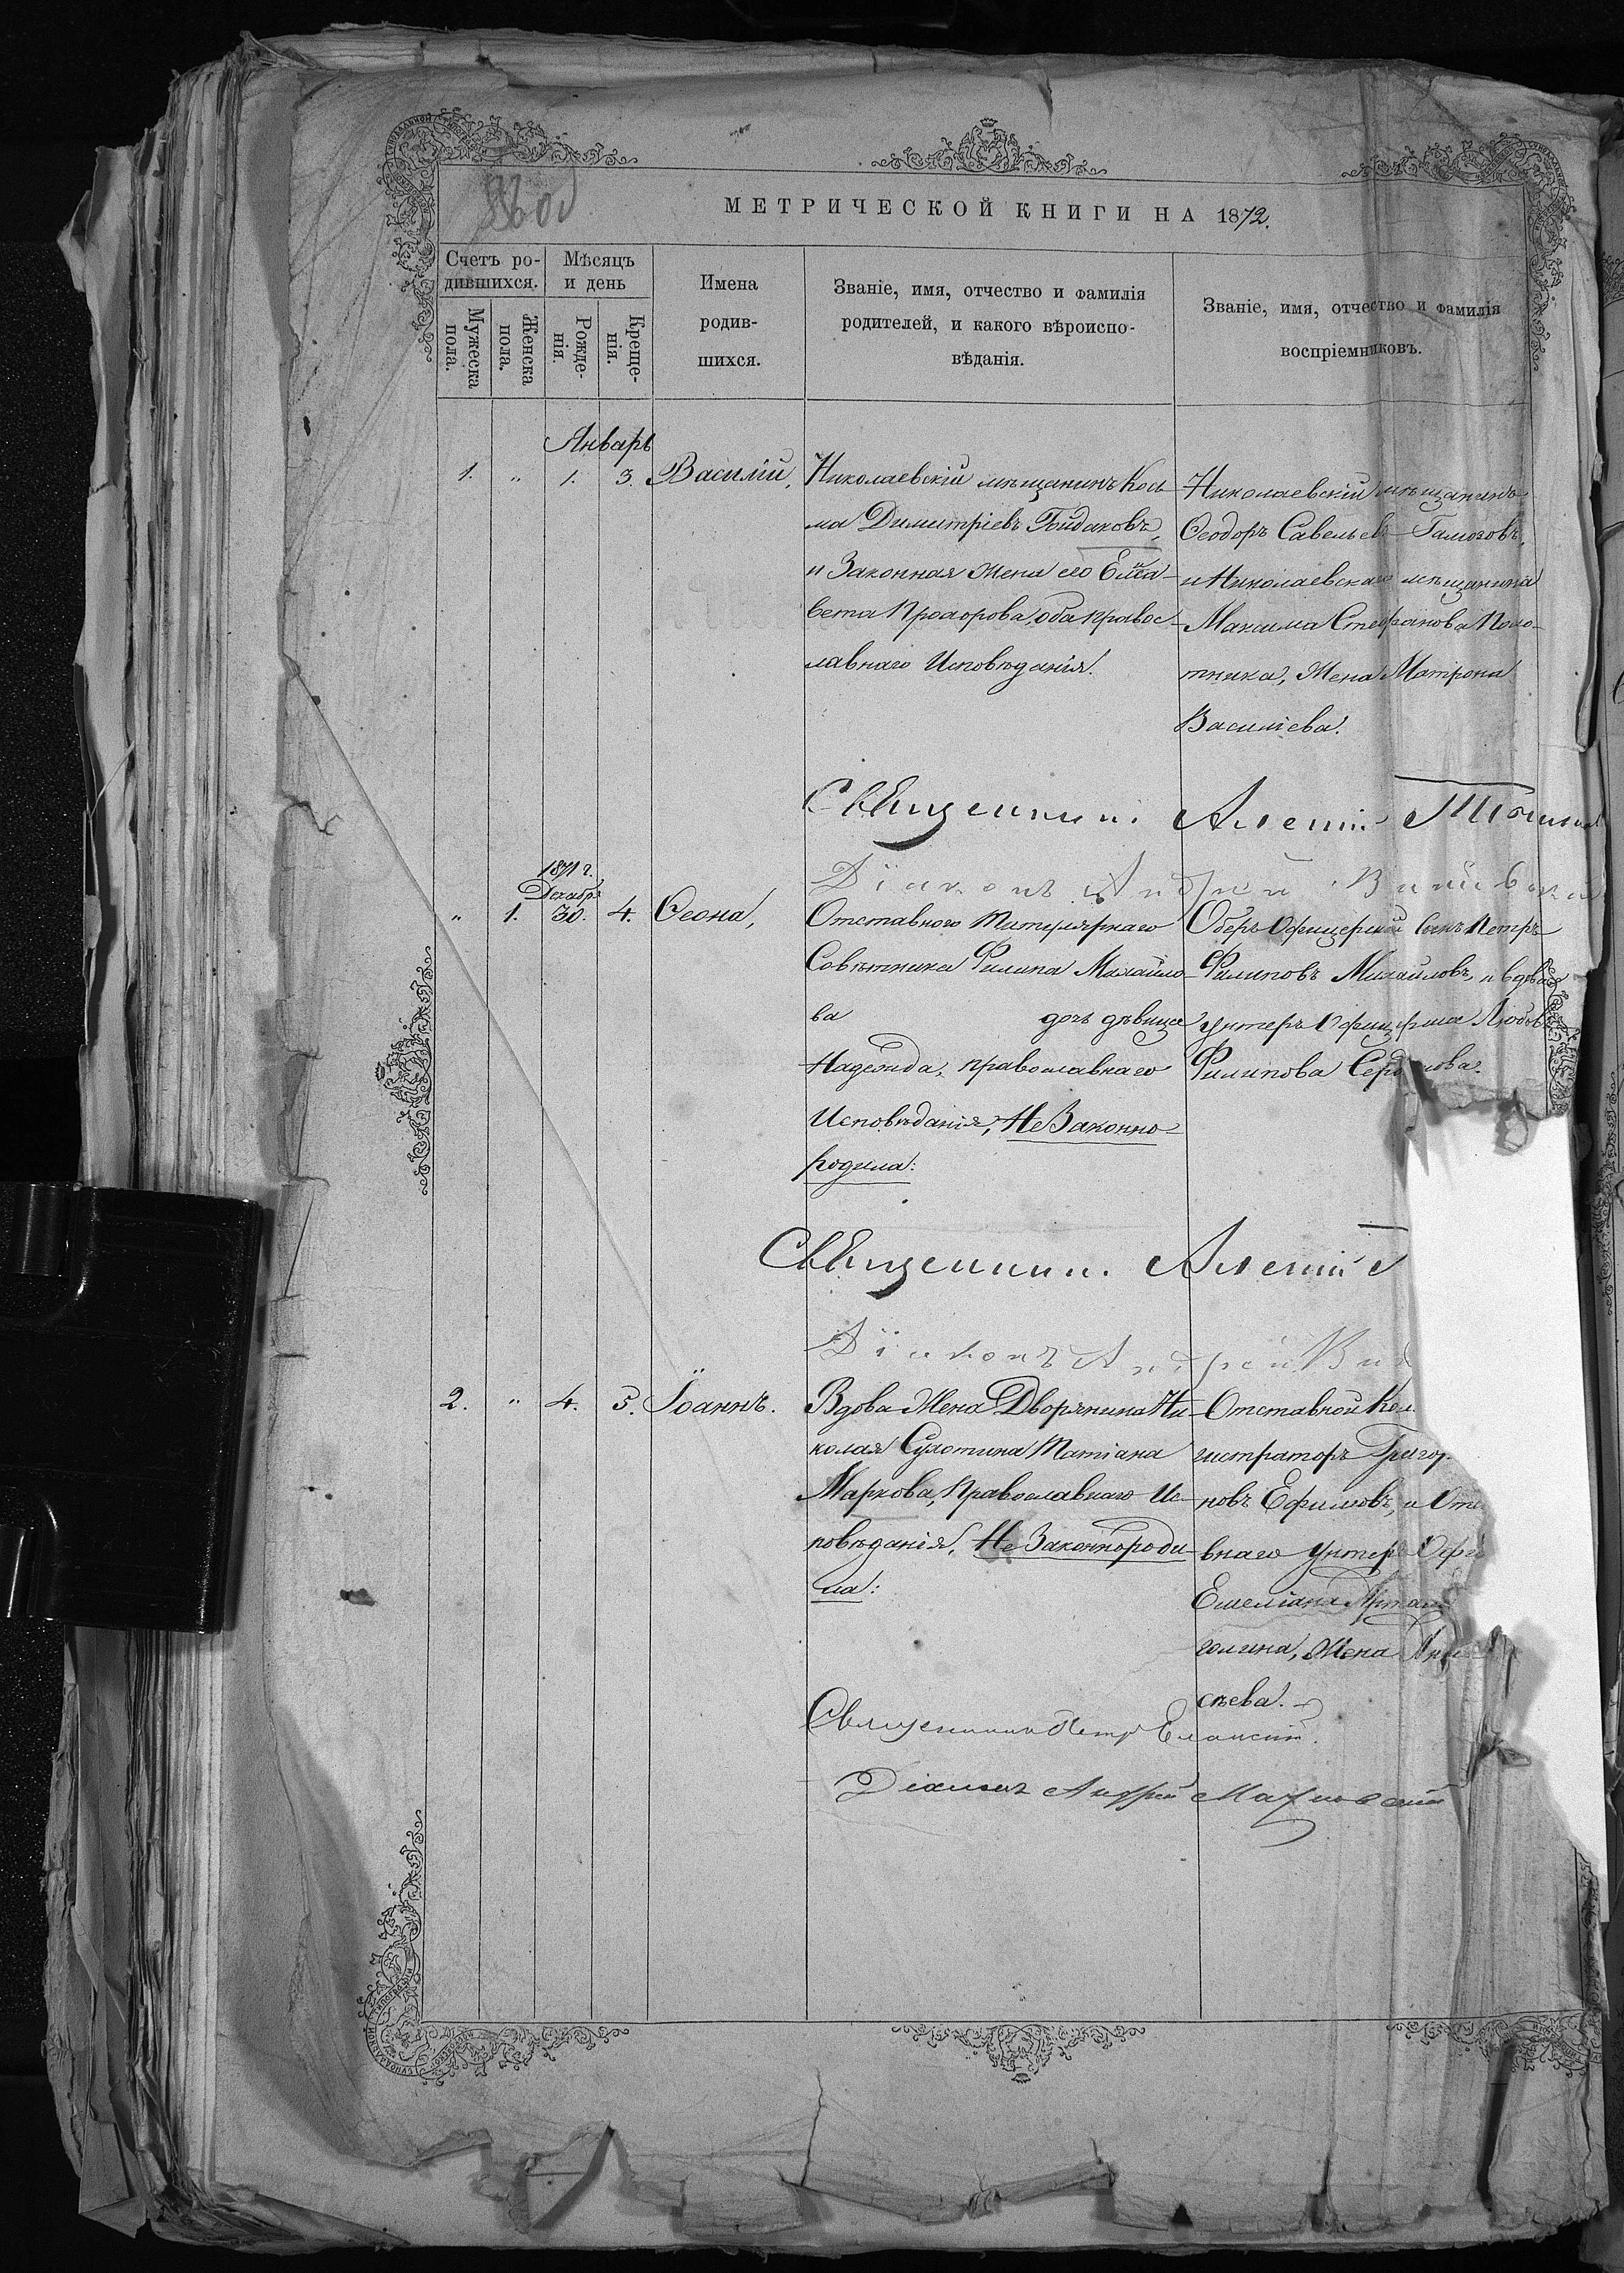 МЕТРИЧЕСКОЙ КНИГИ НА 1872.
Счетъ ро-
дившихся.
Мужеска
пола.
Женска
пола.
Мѣсяцъ
и день
Рожде-
нія.
Креще-
нія.
Имена
родив-
шихся.
Званіе, имя, отчество и фамилія
родителей, и какого вѣроиспо-
вѣданія.
Званіе, имя, отчество и фамилія
воспріемниковъ.
Январь
1. " 1. 3. Василій,
Николаевскій мѣщанинъ Кось
ма Димитріевъ
и Законная Жена его Елиса-
вета Прохорова, оба правос-
лавнаго Исповѣданія.
Николаевскій мѣщанинъ
Ѳеодоръ Савельевъ
и Николаевскаго мѣщанина
Максима Стефанова
тника, Жена Матрона
Василіева.
Священникъ Алексій
Діаконъ Андрей
1871 г.
Декабр
" 1. 30. 4. Ѳеона,
Отставного Титулярнаго
Совѣтника Филипа Михайло-
ва дочь дѣвица
Надежда, православнаго
Исповѣданія, Не Законно-
родила:
Оберъ Офицерскій Сынъ Петръ
Филиповъ Михайловъ, и вдова
унтеръ Офицерша Любовь
Филипова
Священникъ Алексій
Діаконъ Андрей
2. " 4. 5. Іоаннъ.
Вдова Жена Дворянина Ни-
колая Сухотина Татіана
Маркова, Православнаго Ис-
повѣданія, Не Законнороди-
ла:
Отставной Кол
гистраторъ Григор
новъ Ефимовъ, и Отс
внаго Унтеръ Офи
Емеліана
голина, Жена
сѣева.
Священникъ Петръ Еланскій.
Діаконъ Андрей